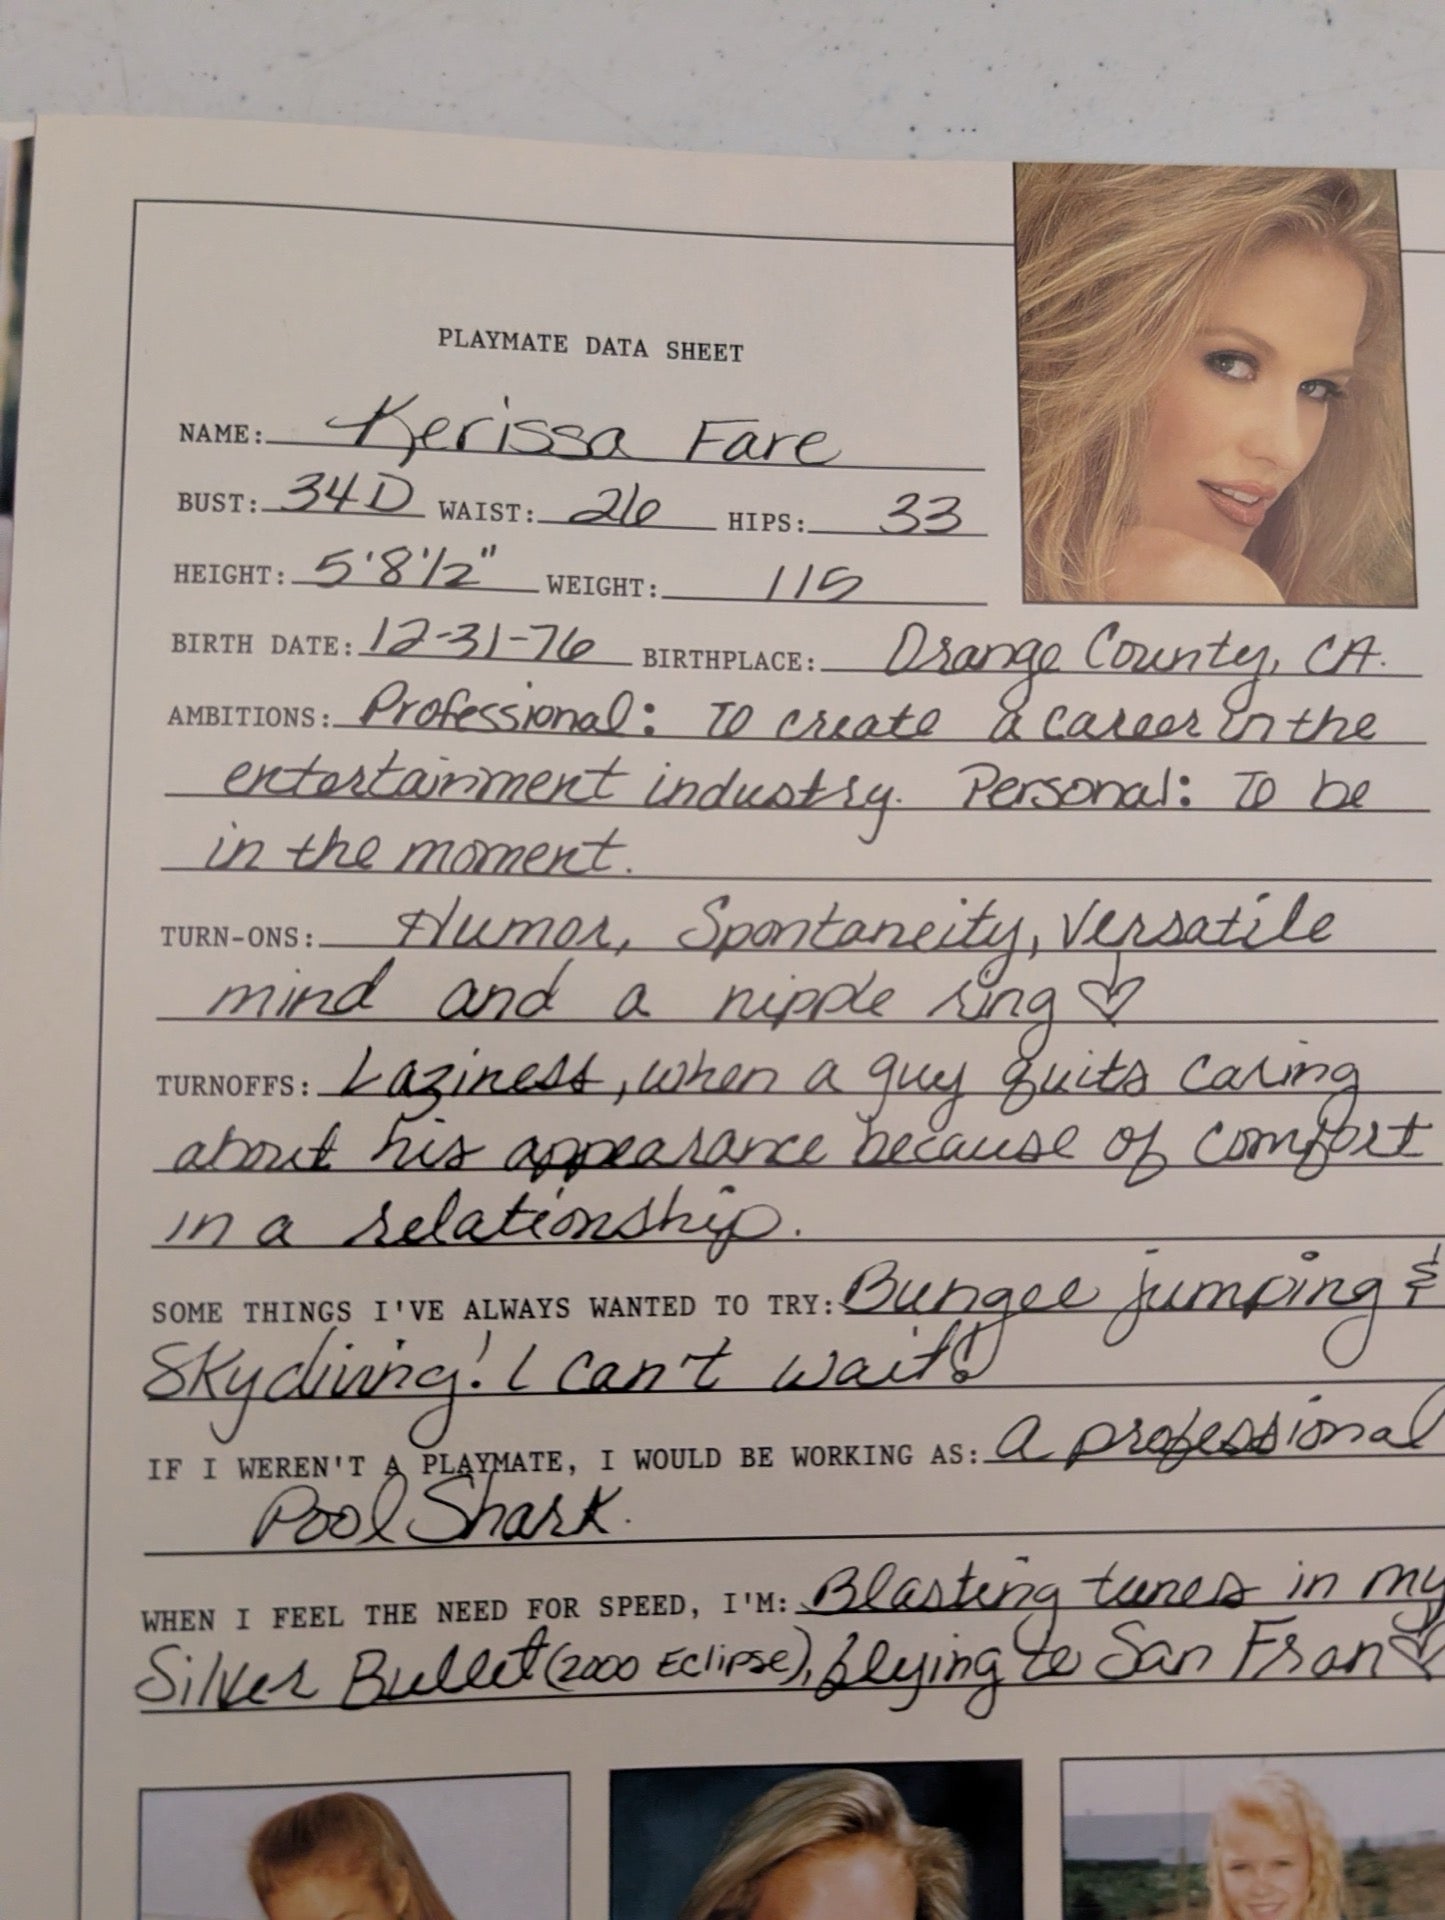 PLAYMATE DATA SHEET
NAME: Kerissa Fare
BUST: 34D WAIST: 26 HIPS: 33
HEIGHT: 5'8 1/2" WEIGHT: 115
BIRTH DATE: 12-31-76 BIRTHPLACE: Orange County, CA.
AMBITIONS: Professional: To create a career in the
entertainment industry. Personal: To be
in the moment.
TURN-ONS: Humor, Spontaneity, Versatile
mind and a nipple ring ♡
TURNOFFS: Laziness, when a guy quits caring
about his appearance because of comfort
in a relationship.
SOME THINGS I'VE ALWAYS WANTED TO TRY: Bungee jumping &
Skydiving! I can't wait!
IF I WEREN'T A PLAYMATE, I WOULD BE WORKING AS: a professional
Pool Shark.
WHEN I FEEL THE NEED FOR SPEED, I'M: Blasting tunes in my
Silver Bullet (2000 Eclipse), flying to San Fran ♡